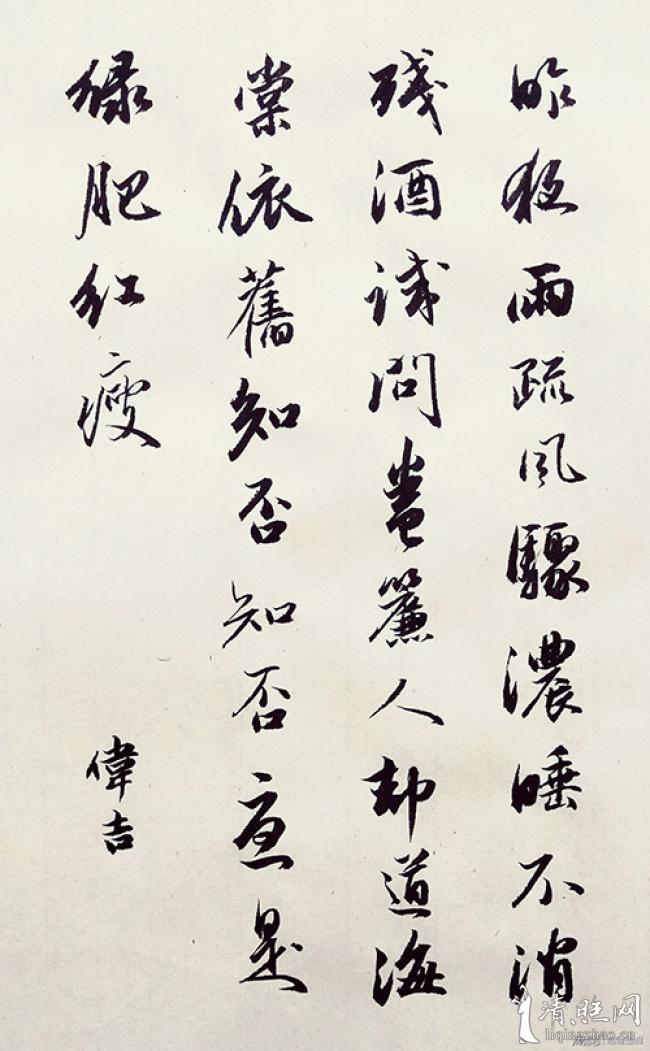 昨夜雨疏风驟濃睡不消
殘酒試問卷簾人却道海
棠依舊知否知否應是
緑肥紅瘦
偉吉
清照网
liqingzhao.cn